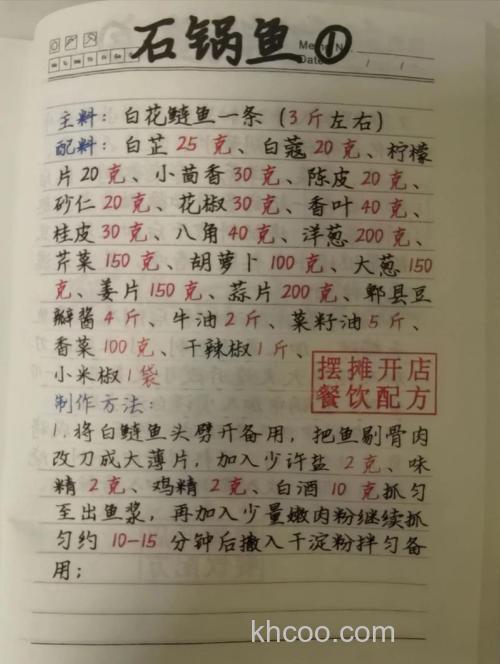 石锅鱼①
Memo No.
Date / /
主料：白花鲢鱼一条（3斤左右）
配料：白芷25克、白蔻20克、柠檬
片20克、小茴香30克、陈皮20克、
砂仁20克、花椒30克、香叶40克、
桂皮30克、八角40克、洋葱200克、
芹菜150克、胡萝卜100克、大葱150
克、姜片150克、蒜片200克、郫县豆
瓣酱4斤、牛油2斤、菜籽油5斤、
香菜100克、干辣椒1斤、
小米椒1袋
摆摊开店
餐饮配方
制作方法：
1.将白鲢鱼头劈开备用，把鱼剔骨肉
改刀成大薄片，加入少许盐2克、味
精2克、鸡精2克、白酒10克抓匀
至出鱼浆，再加入少量嫩肉粉继续抓
匀约10-15分钟后撒入干淀粉拌匀备
用；
khcoo.com